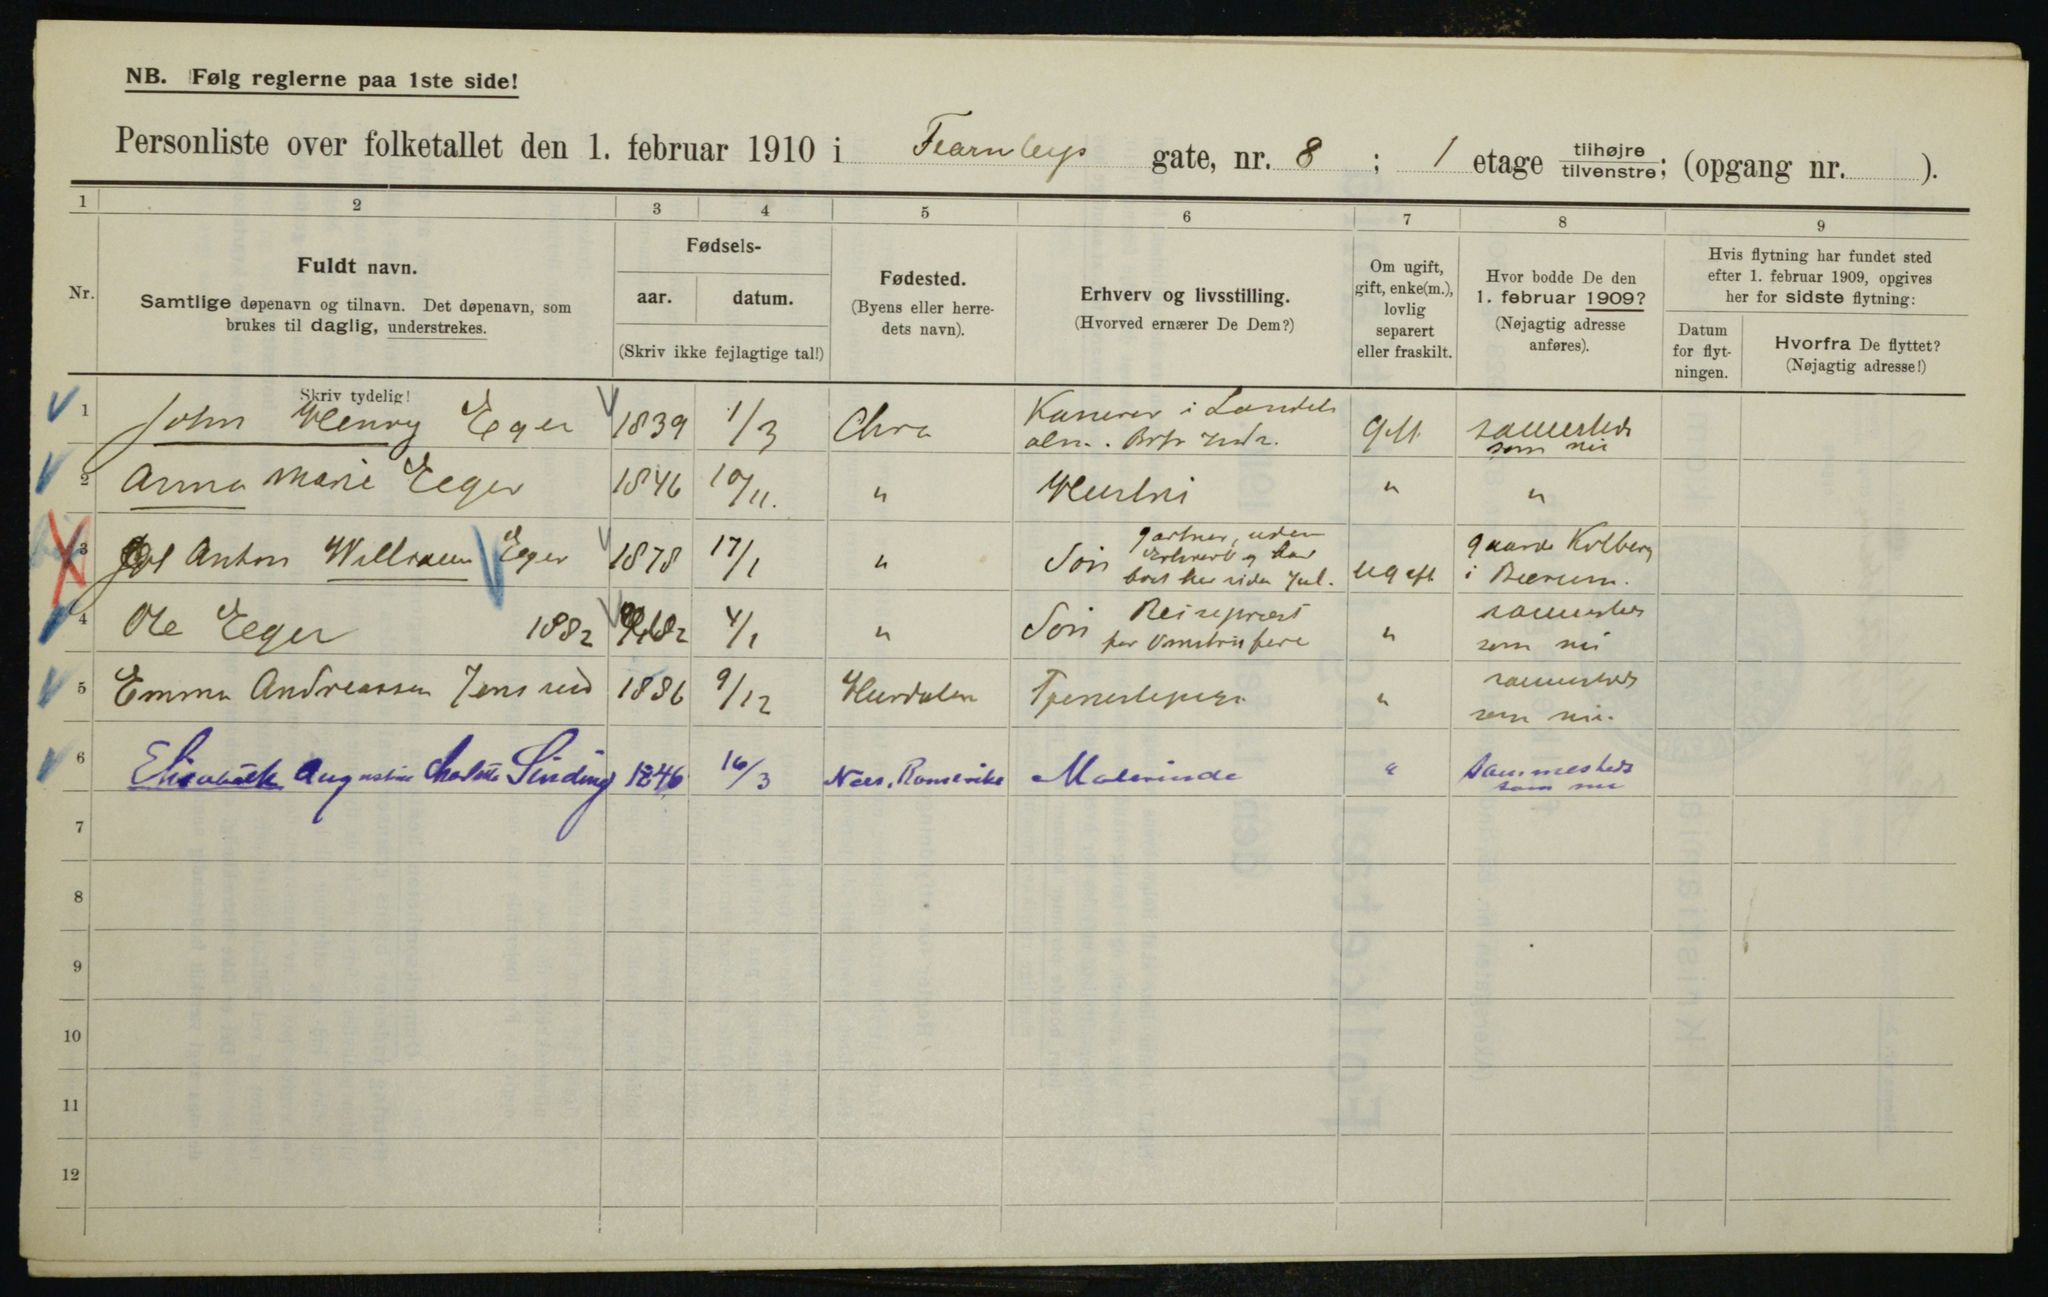 NB. Følg reglerne paa 1ste side!
Personliste over folketallet den 1. februar 1910 i Fearnleys gate, nr. 8 ; 1 etage tilhøjre/tilvenstre; (opgang nr. ).
1 2 3 4 5 6 7 8 9
Nr.
Fuldt navn.
Samtlige døpenavn og tilnavn. Det døpenavn, som
brukes til daglig, understrekes.
Skriv tydelig!
Fødsels-
aar. datum.
(Skriv ikke fejlagtige tal!)
Fødested.
(Byens eller herre-
dets navn).
Erhverv og livsstilling.
(Hvorved ernærer De Dem?)
Om ugift,
gift, enke(m.),
lovlig
separert
eller fraskilt.
Hvor bodde De den
1. februar 1909?
(Nøjagtig adresse
anføres).
Hvis flytning har fundet sted
efter 1. februar 1909, opgives
her for sidste flytning:
Datum
for flyt-
ningen.
Hvorfra De flyttet?
(Nøjagtig adresse!)
1 John Henry Eger 1839 1/3 Chra Kaserer i Landets
alm. Gift samesteds
som nu
2 Anna Marie Eger 1846 10/11. " Hustru " "
3 Anton William Eger 1878 17/1 " Søn gartner, uden
Erhverv og har
bod her siden Jul. ugift gaarde Kolberg
i Bærum.
4 Ole Eger 1882 4/1 " Søn
" samesteds
som nu
5 Emma Andreassen 1886 9/12 Hurdalen Tjenestepige " samesteds
som nu.
6 Elisabeth Augustine Charlotte Sinding 1846 16/3 Nes, Romerike Malerinde " Sammesteds
som nu
7
8
9
10
11
12